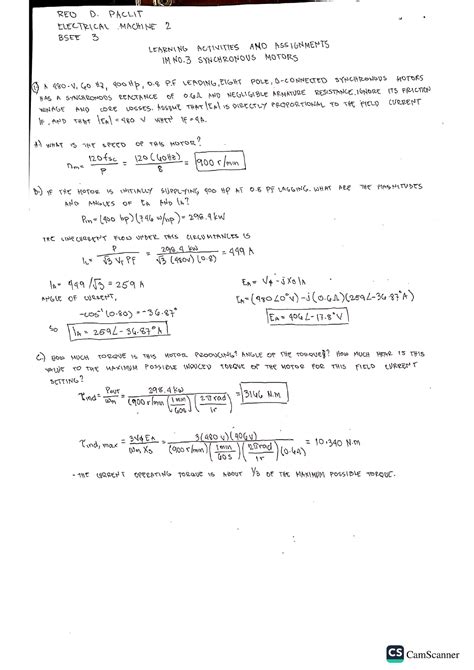 REO D. PACLIT
ELECTRICAL MACHINE 2
BSEE 3
LEARNING ACTIVITIES AND ASSIGNMENTS
IM NO.3 SYNCHRONOUS MOTORS
① A 480-V, 60 Hz, 400 Hp, 0.8 PF LEADING, EIGHT POLE, Δ-CONNECTED SYNCHRONOUS MOTORS
HAS A SYNCHRONOUS REACTANCE OF 0.6Ω AND NEGLIGIBLE ARMATURE RESISTANCE. IGNORE ITS FRICTION
WINAGE AND CORE LOSSES. ASSUME THAT |EA| IS DIRECTLY PROPORTIONAL TO THE FIELD CURRENT
IF, AND THAT |EA| = 480 V WHEN IF = 4A.
A) WHAT IS THE SPEED OF THIS MOTOR?
nm = 120fse / P = 120(60Hz) / 8 = 900 r/min
B) IF THE MOTOR IS INITIALLY SUPPLYING 400 HP AT 0.8 PF LAGGING. WHAT ARE THE MAGNITUDES
AND ANGLES OF EA AND IA?
Pin = (400 hp)(746 W/hp) = 298.4 kW
THE LINE CURRENT FLOW UNDER THIS CIRCUMTANCES IS
IL = P / √3 VT PF = 298.4 kW / √3 (480V)(0.8) = 449 A
IA = 449/√3 = 259 A
EA = Vφ - jXs IA
ANGLE OF CURRENT,
EA = (480∠0°V) - j(0.6Ω)(259∠-36.87°A)
-cos⁻¹(0.80) = -36.87°
EA = 406∠-17.8°V
SO IA = 259∠-36.87°A
C) HOW MUCH TORQUE IS THIS MOTOR PRODUCING? ANGLE OF THE TORQUE δ? HOW MUCH NEAR IS THIS
VALUE TO THE MAXIMUM POSSIBLE INDUCED TORQUE OF THE MOTOR FOR THIS FIELD CURRENT
SETTING?
τind = Pout / ωm = 298.4 kW / (900 r/min)(1 min / 60s)(2π rad / 1r) = 3166 N.m
τind, max = 3VφEA / ωm Xs = 3(480 V)(406V) / (900 r/min)(1min / 60 s)(2π rad / 1r)(0.6Ω) = 10,340 N.m
- THE CURRENT OPERATING TORQUE IS ABOUT 1/3 OF THE MAXIMUM POSSIBLE TORQUE.
CS CamScanner